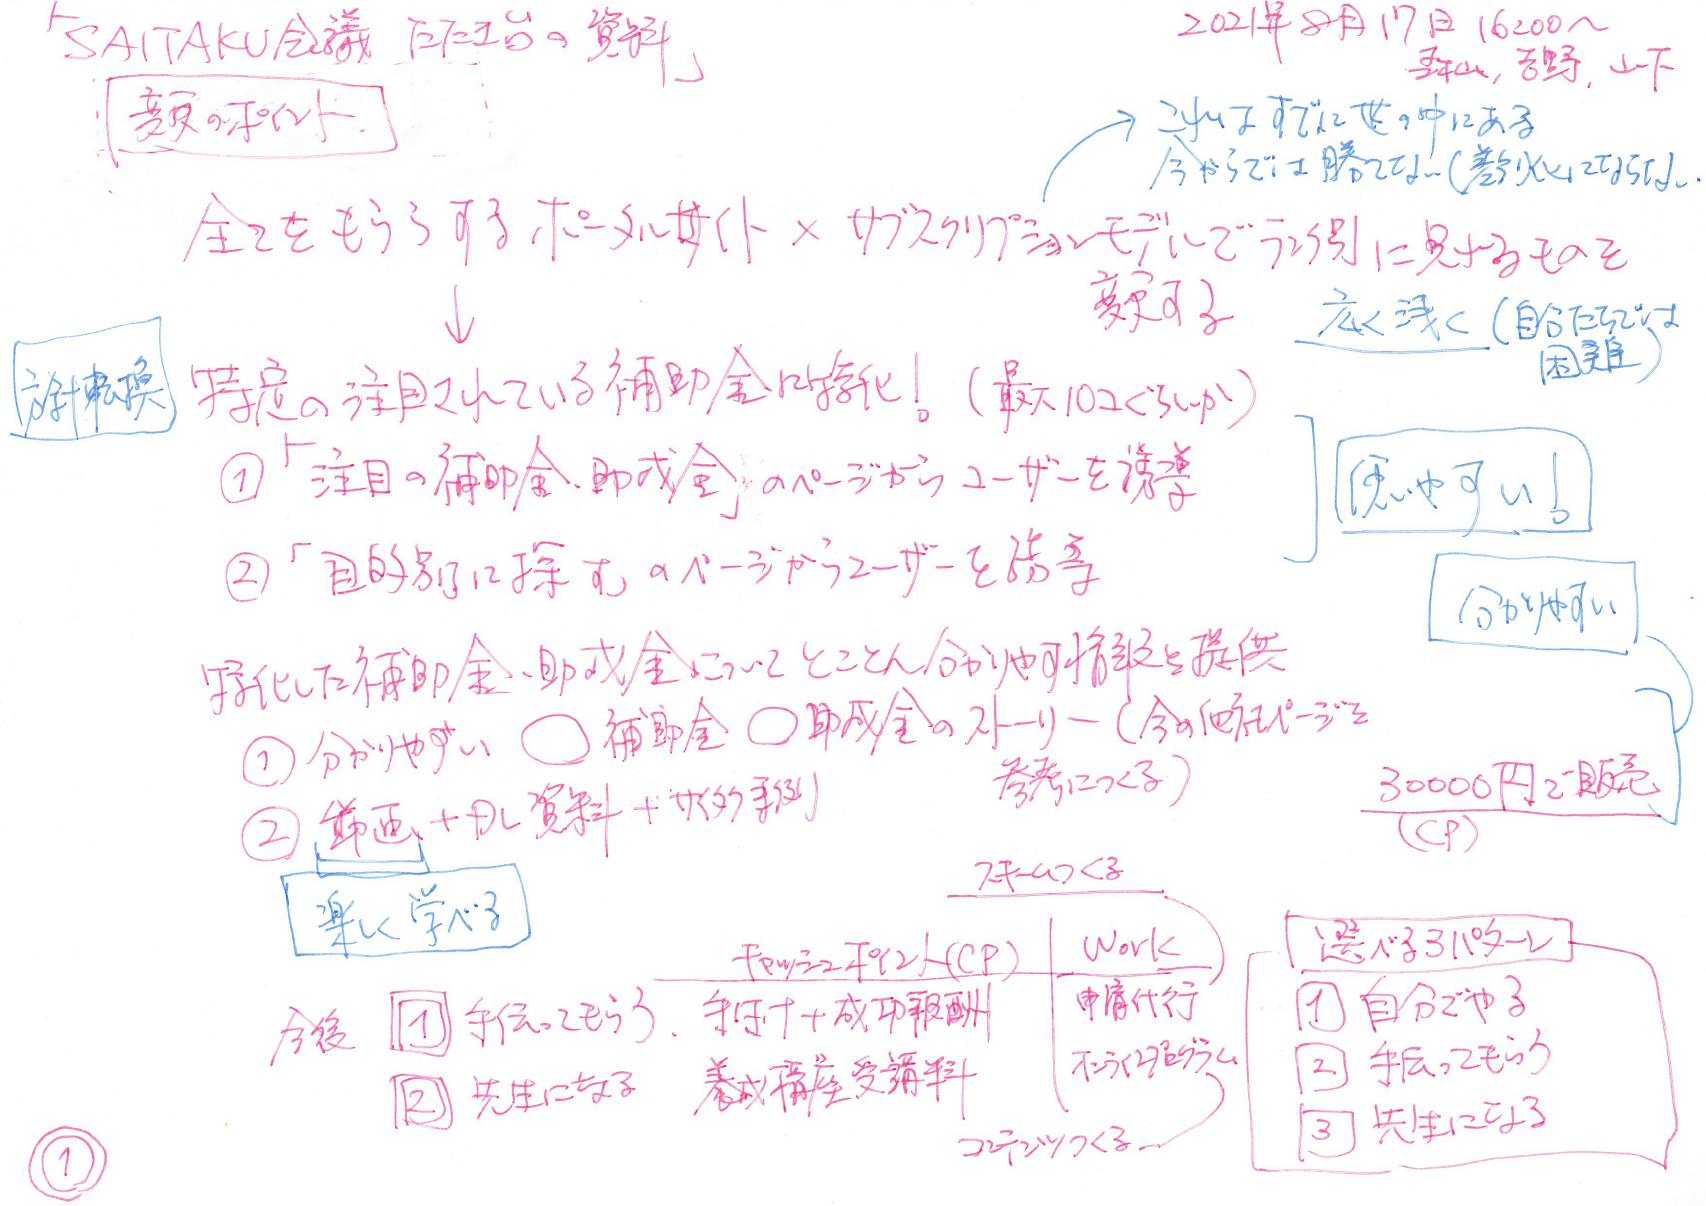 「SAITAKU会議 たたき台の資料」
2021年8月17日 16:00〜
吉野, 山下
変更のポイント
→ これはすでに世の中にある
今からでは勝てない(差別化にならない
全てをもうらするポータルサイト × サブスクリプションモデルでランク別に見せるものを
変更する
広く浅く(自分たちでは
困難)
↓
方針転換
特定の注目されている補助金に特化!(最大10コぐらいか)
① 「注目の補助金・助成金」のページからユーザーを誘導
② 「目的別に探す」のページからユーザーを誘導
使いやすい!
分かりやすい
特化した補助金・助成金についてとことん分かりやすい情報を提供
① 分かりやすい ◯補助金 ◯助成金のストーリー(今の他社ページを
参考につくる)
② 動画+DL資料+サイタク事例
楽しく学べる
30000円で販売
(CP)
スキームつくる
キャッシュポイント(CP) Work
今後 1 手伝ってもらう. 手付+成功報酬 申請代行
2 先生になる 養成講座受講料 オンラインプログラム
コンテンツつくる
選べる3パターン
1 自分でやる
2 手伝ってもらう
3 先生になる
①